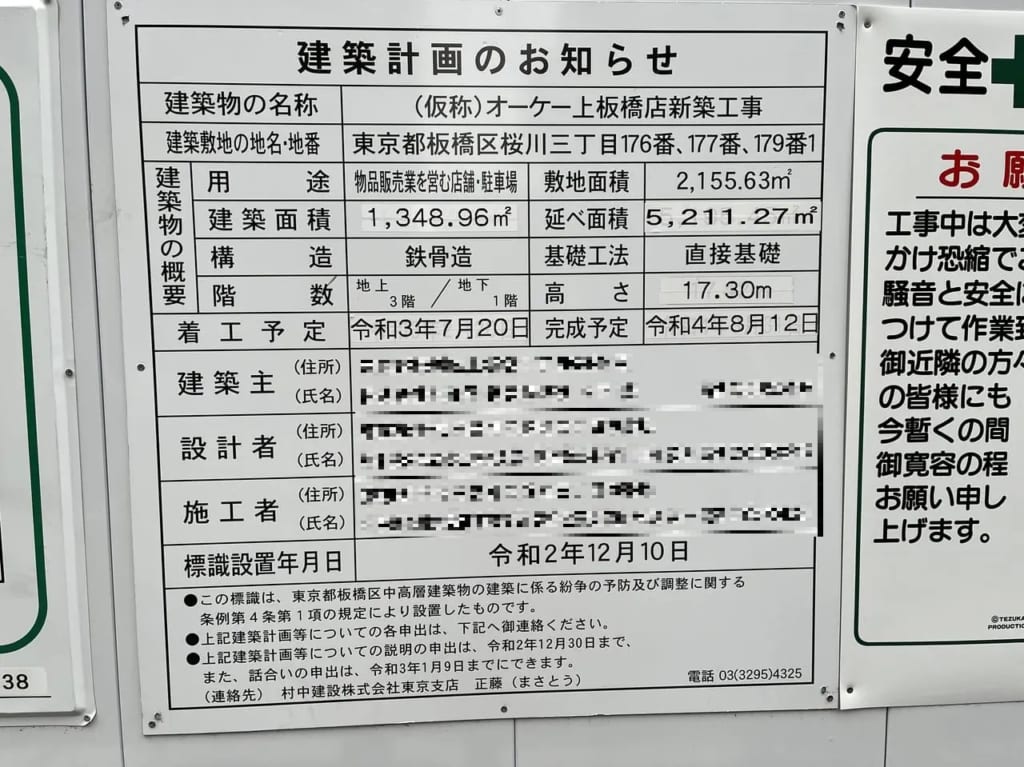 建築計画のお知らせ
建築物の名称 (仮称)オーケー上板橋店新築工事
建築敷地の地名・地番 東京都板橋区桜川三丁目176番、177番、179番1
建築物の概要
用途 物品販売業を営む店舗・駐車場 敷地面積 2,155.63㎡
建築面積 1,348.96㎡ 延べ面積 5,211.27㎡
構造 鉄骨造 基礎工法 直接基礎
階数 地上3階/地下1階 高さ 17.30m
着工予定 令和3年7月20日 完成予定 令和4年8月12日
建築主 (住所)
(氏名)
設計者 (住所)
(氏名)
施工者 (住所)
(氏名)
標識設置年月日 令和2年12月10日
●この標識は、東京都板橋区中高層建築物の建築に係る紛争の予防及び調整に関する
条例第4条第1項の規定により設置したものです。
●上記建築計画等についての各申出は、下記へ御連絡ください。
●上記建築計画等についての説明の申出は、令和2年12月30日まで、
また、話合いの申出は、令和3年1月9日までにできます。
(連絡先) 村中建設株式会社東京支店 正藤(まさとう) 電話 03(3295)4325
安全
お願
工事中は大変
かけ恐縮でご
騒音と安全に
つけて作業致
御近隣の方々
の皆様にも
今暫くの間
御寛容の程
お願い申し
上げます。
©TEZUKA
PRODUCTIO
38